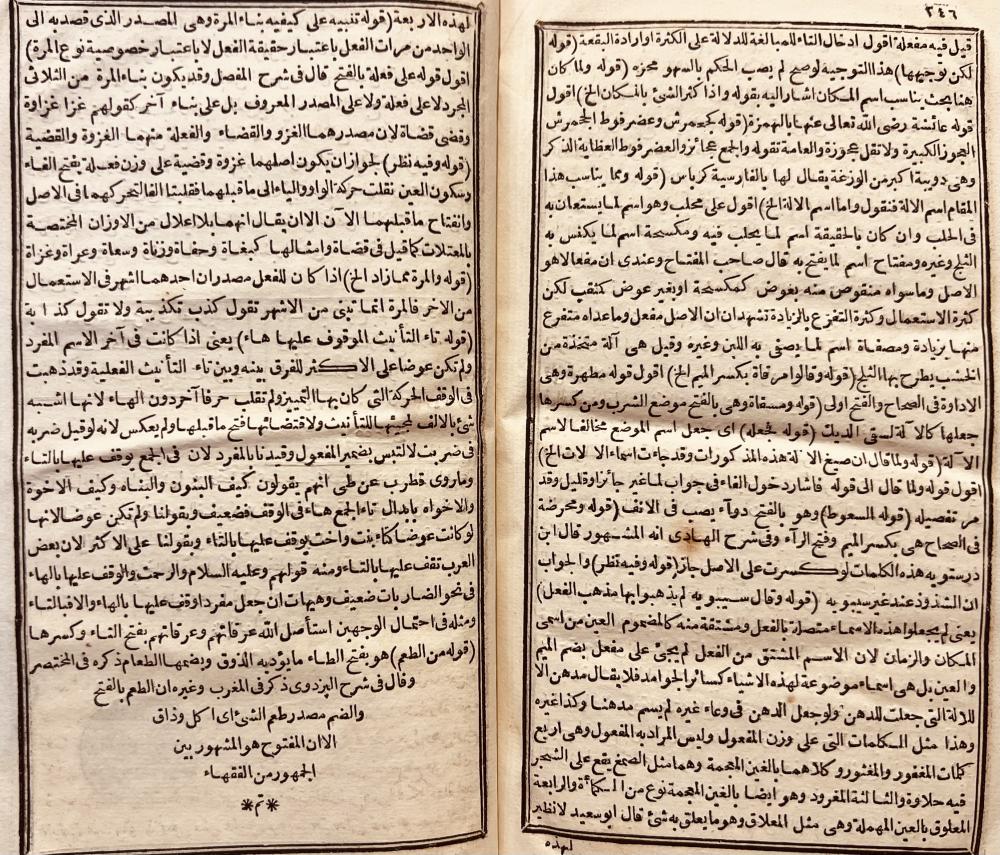 ٢٤٦
قيل فيه مفعلة اقول ادخال التاء للمبالغة للدلالة على الكثرة او ارادة البقعة (قوله
لكن توجيهها) هذا التوجيه لو صح لم يصب الحكم بالسهو محزه (قوله ولما كان
هنا بحث يناسب اسم المكان اشار اليه بقوله واذا كثر الشئ بالمكان الخ) اقول
قوله عائشة رضى الله تعالى عنها بالهمزة (قوله كجحمرش وعضرفوط الجحمرش
العجوز الكبيرة ولا تقل عجوزة والعامة تقوله والجمع عجائز والعضرفوط العظاية الذكر
وهى دويبة اكبر من الوزغة يقال لها بالفارسية كرباس (قوله ومما يناسب هذا
المقام اسم الالة فنقول واما اسم الالة الخ) اقول على محلب وهو اسم لما يستعان به
فى الحلب وان كان بالحقيقة اسم لما يحلب فيه ومكسحة اسم لما يكنس به
الثلج وغيره ومفتاح اسم لما يفتح به قال صاحب المفتاح وعندى ان مفعالا هو
الاصل وما سواه منقوص منه بعوض كمكسحة او بغير عوض كمثقب لكن
كثرة الاستعمال وكثرة التفرع بالزيادة تشهدان ان الاصل مفعل وما عداه متفرع
منها بزيادة ومصفاة اسم لما يصفى به اللبن وغيره وقيل هى آلة متخذة من
الخشب يطرح بها الثلج (قوله وقالوا مرقاة بكسر الميم الخ) اقول قوله مطهرة وهى
الاداوة فى الصحاح والفتح اولى (قوله ومسقاة وهى بالفتح موضع الشرب ومن كسرها
جعلها كالآلة لسقى الديك (قوله فجعله) اى جعل اسم الموضع مخالفا لاسم
الآلة (قوله ولما قال ان صيغ الآلة هذه المذكورات وقد جاءت اسماء الالات الخ)
اقول قوله ولما قال الى قوله فاشار دخول الفاء فى جواب لما غير جائز او قليل وقد
مر تفصيله (قوله السعوط) وهو بالفتح دوآء يصب فى الانف (قوله ومحرضة
فى الصحاح هى بكسر الميم وفتح الرآء وفى شرح الهادى انه المشهور قال ابن
درستويه هذه الكلمات لو كسرت على الاصل جاز (قوله وفيه نظر) والجواب
ان الشذوذ عند غير سيبويه (قوله وقال سيبويه لم يذهبوا بها مذهب الفعل)
يعنى لم يجعلوا هذه الاسماء متصلة بالفعل ومشتقة منه كالمضموم العين من اسمى
المكان والزمان لان الاسم المشتق من الفعل لم يجئ على مفعل بضم الميم
والعين بل هى اسماء موضوعة لهذه الاشياء كسائر الجوامد فلا يقال مدهن الا
للالة التى جعلت للدهن ولو جعل الدهن فى وعاء غيره لم يسم مدهنا وكذا غيره
وهذا مثل الكلمات التى على وزن المفعول وليس المراد به المفعول وهى اربع
كلمات المغفور والمغثور وكلاهما بالغين المعجمة وهما مثل الصمغ يقع على الشجر
فيه حلاوة والثالثة المغرود وهو ايضا بالغين المعجمة نوع من الكمأة والرابعة
المعلوق بالعين المهملة وهى مثل المعلاق وهو ما يعلق به شئ قال ابو سعيد لا نظير
لهذه
لهذه الاربعة (قوله تنبيه على كيفيه بناء المرة وهى المصدر الذى قصد به الى
الواحد من مرات الفعل باعتبار حقيقة الفعل لا باعتبار خصوصية نوع المرة)
اقول قوله على فعلة بالفتح قال فى شرح المفصل وقد يكون بناء المرة من الثلاثى
المجرد لا على فعلة ولا على المصدر المعروف بل على بناء آخر كقولهم غزا غزاوة
وقضى قضاة لان مصدرهما الغزو والقضاء والفعلة منهما الغزوة والقضية
(قوله وفيه نظر) لجواز ان يكون اصلهما غزوة وقضية على وزن فعلة بفتح الفاء
وسكون العين نقلت حركة الواو والياء الى ما قبلهما فقلبتا الفا لتحركهما فى الاصل
وانفتاح ما قبلهما الآن الا ان يقال انهما بلا اعلال من الاوزان المختصة
بالمعتلات كما قيل فى قضاة وامثالها كبغاة وحفاة وزناة وسعاة وعراة وغزاة
(قوله والمرة مما زاد الخ) اذا كان للفعل مصدران احدهما اشهر فى الاستعمال
من الاخر فالمرة انما تبنى من الاشهر تقول كذب تكذيبة ولا تقول كذابة
(قوله تاء التأنيث الموقوف عليها هاء) يعنى اذا كانت فى آخر الاسم المفرد
ولم تكن عوضا على الاكثر للفرق بينه وبين تاء التأنيث الفعلية وقد ذهبت
فى الوقف الحركة التى كان بها التمييز ولم تقلب حرفا آخر دون الهاء لانها اشبه
شئ بالالف لمجيئها للتأنيث ولاقتضائها فتح ما قبلها ولم يعكس لانه لو قيل ضربه
فى ضربت لالتبس بضمير المفعول وقيدنا بالمفرد لان فى الجمع يوقف عليها بالتاء
وما روى قطرب عن طى انهم يقولون كيف البنون والبناه وكيف الاخوة
والاخواه بابدال تاء الجمع هاء فى الوقف فضعيف وبقولنا ولم تكن عوضا لانها
لو كانت عوضا كتاء بنت واخت يوقف عليها بالتاء وبقولنا على الاكثر لان بعض
العرب تقف عليها بالتاء ومنه قولهم وعليه السلام والرحمت والوقف عليها بالهاء
فى نحو الضاربات ضعيف وهيهات ان جعل مفردا وقف عليها بالهاء والا فبالتاء
ومثله فى احتمال الوجهين استأصل الله عرقاتهم وعرقاتهم بفتح التاء وكسرها
(قوله من الطعم) هو بفتح الطاء ما يؤديه الذوق وبضمها الطعام ذكره فى المختصر
وقال فى شرح البزدوى ذكر فى المغرب وغيره ان الطعم بالفتح
والضم مصدر طعم الشئ اى اكل وذاق
الا ان المفتوح هو المشهور بين
الجمهور من الفقهاء
* تم *